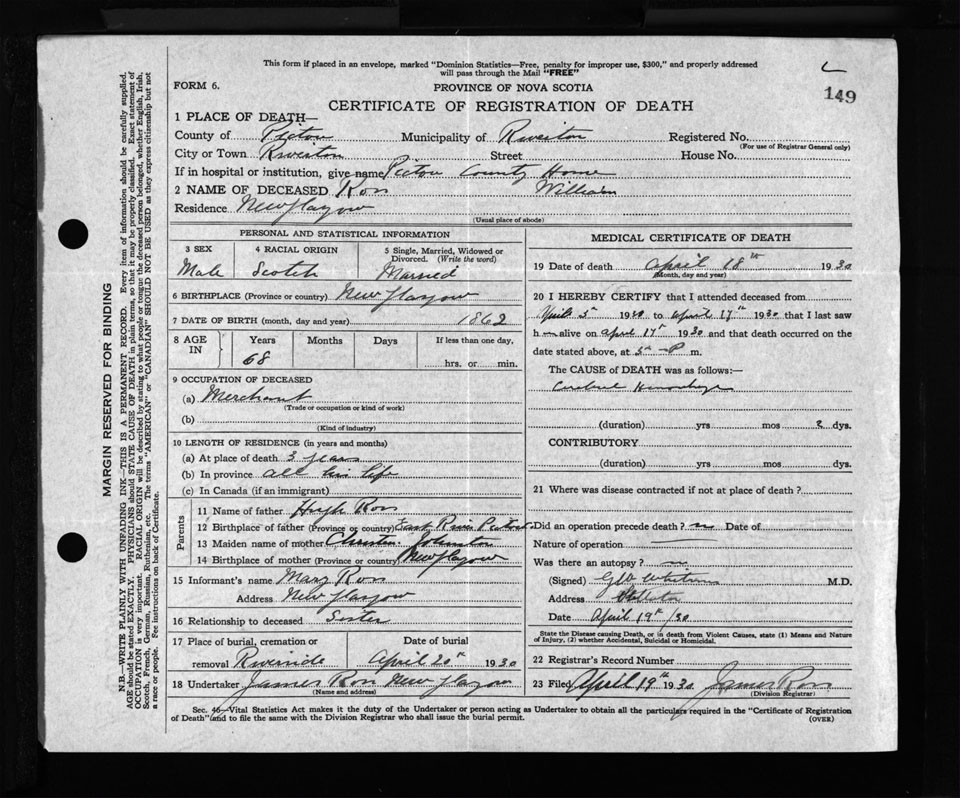 This form if placed in an envelope, marked "Dominion Statistics—Free, penalty for improper use, $300," and properly addressed
will pass through the Mail "FREE"
149
FORM 6.
PROVINCE OF NOVA SCOTIA
CERTIFICATE OF REGISTRATION OF DEATH
1 PLACE OF DEATH—
County of Pictou Municipality of Riverton Registered No.
(For use of Registrar General only)
City or Town Riverton Street House No.
If in hospital or institution, give name Pictou County Home
2 NAME OF DECEASED Ross William
Residence New Glasgow
(Usual place of abode)
PERSONAL AND STATISTICAL INFORMATION
3 SEX 4 RACIAL ORIGIN 5 Single, Married, Widowed or
Divorced. (Write the word)
Male Scotch Married
6 BIRTHPLACE (Province or country) New Glasgow
7 DATE OF BIRTH (month, day and year) 1862
8 AGE IN Years Months Days If less than one day,
68 hrs. or min.
9 OCCUPATION OF DECEASED
(a) Merchant
(Trade or occupation or kind of work)
(b)
(Kind of industry)
10 LENGTH OF RESIDENCE (in years and months)
(a) At place of death 3 years
(b) In province all his life
(c) In Canada (if an immigrant)
Parents
11 Name of father Hugh Ross
12 Birthplace of father (Province or country) East River Pictou
13 Maiden name of mother Christie Johnston
14 Birthplace of mother (Province or country) New Glasgow
15 Informant's name Mary Ross
Address New Glasgow
16 Relationship to deceased Sister
17 Place of burial, cremation or Date of burial
removal Riverside April 20th 1930
18 Undertaker James Ross New Glasgow
(Name and address)
MEDICAL CERTIFICATE OF DEATH
19 Date of death April 18th 1930
(Month, day and year)
20 I HEREBY CERTIFY that I attended deceased from
April 5 1930 to April 17th 1930 that I last saw
h alive on April 17th 1930 and that death occurred on the
date stated above, at 5 P m.
The CAUSE OF DEATH was as follows:—
Cerebral Hemorrhage
(duration) yrs mos 2 dys.
CONTRIBUTORY
(duration) yrs mos dys.
21 Where was disease contracted if not at place of death?
Did an operation precede death? no Date of
Nature of operation
Was there an autopsy? no
(Signed) M.D.
Address Stellarton
Date April 19th /30
State the Disease causing Death, or in death from Violent Causes, state (1) Means and Nature
of Injury, (2) whether Accidental, Suicidal or Homicidal.
22 Registrar's Record Number
23 Filed April 19th 1930 James Ross
(Division Registrar)
Sec. 46—Vital Statistics Act makes it the duty of the Undertaker or person acting as Undertaker to obtain all the particulars required in the "Certificate of Registration
of Death" and to file the same with the Division Registrar who shall issue the burial permit. (OVER)
MARGIN RESERVED FOR BINDING
N.B.—WRITE PLAINLY WITH UNFADING INK—THIS IS A PERMANENT RECORD. Every item of information should be carefully supplied.
AGE should be stated EXACTLY. PHYSICIANS should STATE CAUSE OF DEATH in plain terms, so that it may be properly classified. Exact statement of
OCCUPATION is very important. RACIAL ORIGIN will be described by stating to what people or tongue the deceased person belonged, whether English, Irish,
Scotch, French, German, Russian, Ruthenian, etc. The terms "AMERICAN" or "CANADIAN" SHOULD NOT BE USED as they express citizenship but not
a race or people. See instructions on back of Certificate.